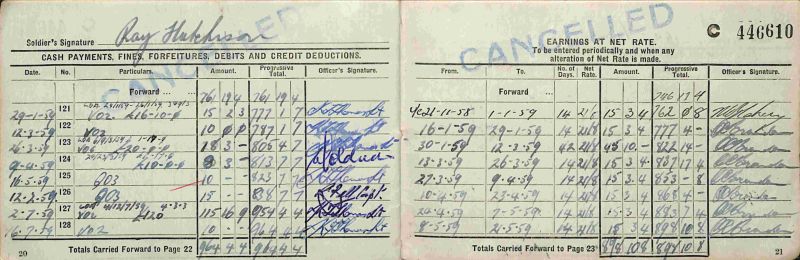 CANCELLED
Soldier's Signature Ray Hutchison
CASH PAYMENTS, FINES, FORFEITURES, DEBITS AND CREDIT DEDUCTIONS.
Date. No. Particulars. Amount. Progressive Total. Officer's Signature.
Forward ... 761 19 4 761 19 4
29-1-59 121 VO2 £16-10-0 15 2 3 777 1 7
12-3-59 122 VO2 10 0 0 787 1 7
26-3-59 123 £20-0-0 18 3 - 805 4 7
9-4-59 124 £10-0-0 8 3 - 813 7 7
16-5-59 125 303 10 - - 823 7 7
12-2-59 126 303 15 - - 838 7 7
2-7-59 127 VO2 £120 115 16 9 954 4 4
16-7-59 128 VO2 10 - - 964 4 4
Totals Carried Forward to Page 22 964 4 4 964 4 4
20
CANCELLED
C 446610
EARNINGS AT NET RATE.
To be entered periodically and when any
alteration of Net Rate is made.
From. To. No. of Days. Net Rate. Amount. Progressive Total. Officer's Signature.
Forward ...
21-11-58 1-1-59 14 21/8 15 3 4 762 0 8
16-1-59 29-1-59 14 21/8 15 3 4 777 4 -
30-1-59 12-3-59 42 21/8 45 10 - 822 14 -
13-3-59 26-3-59 14 21/8 15 3 4 837 17 4
27-3-59 9-4-59 14 21/8 15 3 4 853 - 8
10-4-59 23-4-59 14 21/8 15 3 4 868 4 -
24-4-59 7-5-59 14 21/8 15 3 4 883 7 4
8-5-59 21-5-59 14 21/8 15 3 4 898 10 8
Totals Carried Forward to Page 23 898 10 8 898 10 8
21